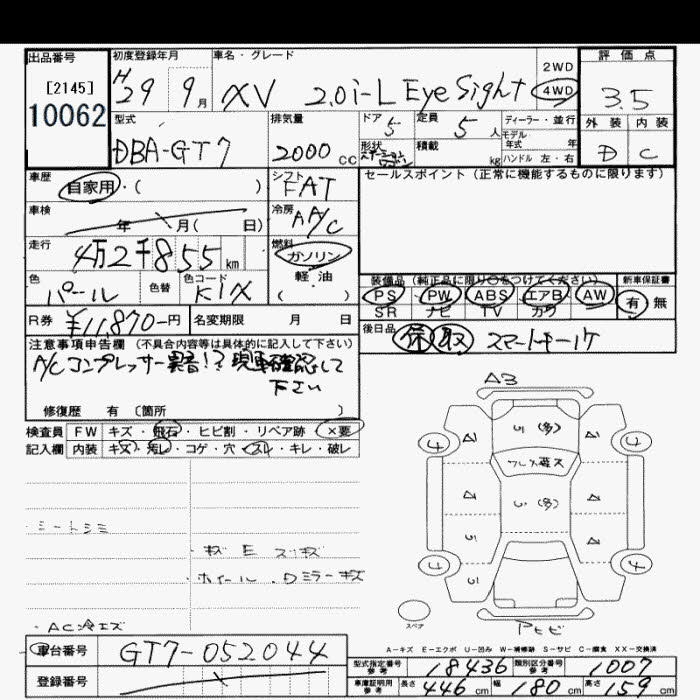 出品番号 初度登録年月 車名・グレード 評価点
[2145]
10062
H29 9月 XV 2.0i-L EyeSight 2WD 4WD 3.5
型式 排気量 ドア 定員 ディーラー・並行 外装 内装
DBA-GT7 2000 cc 5 5人 モデル年式 年 D C
形状 積載 kg ハンドル 左・右
車歴 シフト セールスポイント (正常に機能するものに限ります)
自家用・( ) FAT
車検 年 月( 日) 冷房 A/C
走行 4万2千855km 燃料 ガソリン
軽・油
( )
色 パール 色替 色コード K1X
装備品 (純正品に限り○をつけてください) 新車保証書
PS PW ABS エアB AW 有 無
SR ナビ TV カワ
R券 ¥11,870-円 名変期限 月 日 後日品 保 取 スマートキー1ケ
注意事項申告欄 (不具合内容等は具体的に記入して下さい)
A/Cコンプレッサー異音!?現車確認して
下さい
修復歴 有 〔箇所 〕
検査員 FW キズ・飛石・ヒビ割・リペア跡 ×要
記入欄 内装 キズ・汚レ・コゲ・穴・スレ・キレ・破レ
A3
・シートシミ
・キズ E スリキズ
・ホイール・Dミラーキズ
・AC冷エズ
スペア
A-キズ E-エクボ U-凹み W-補修跡 S-サビ C-腐食 XX-交換済
車台番号 GT7-052044
型式指定番号 参考 18436 類別区分番号 参考 1007
登録番号
車庫証明用 参考 長さ 446 cm 幅 180 cm 高さ 159 cm